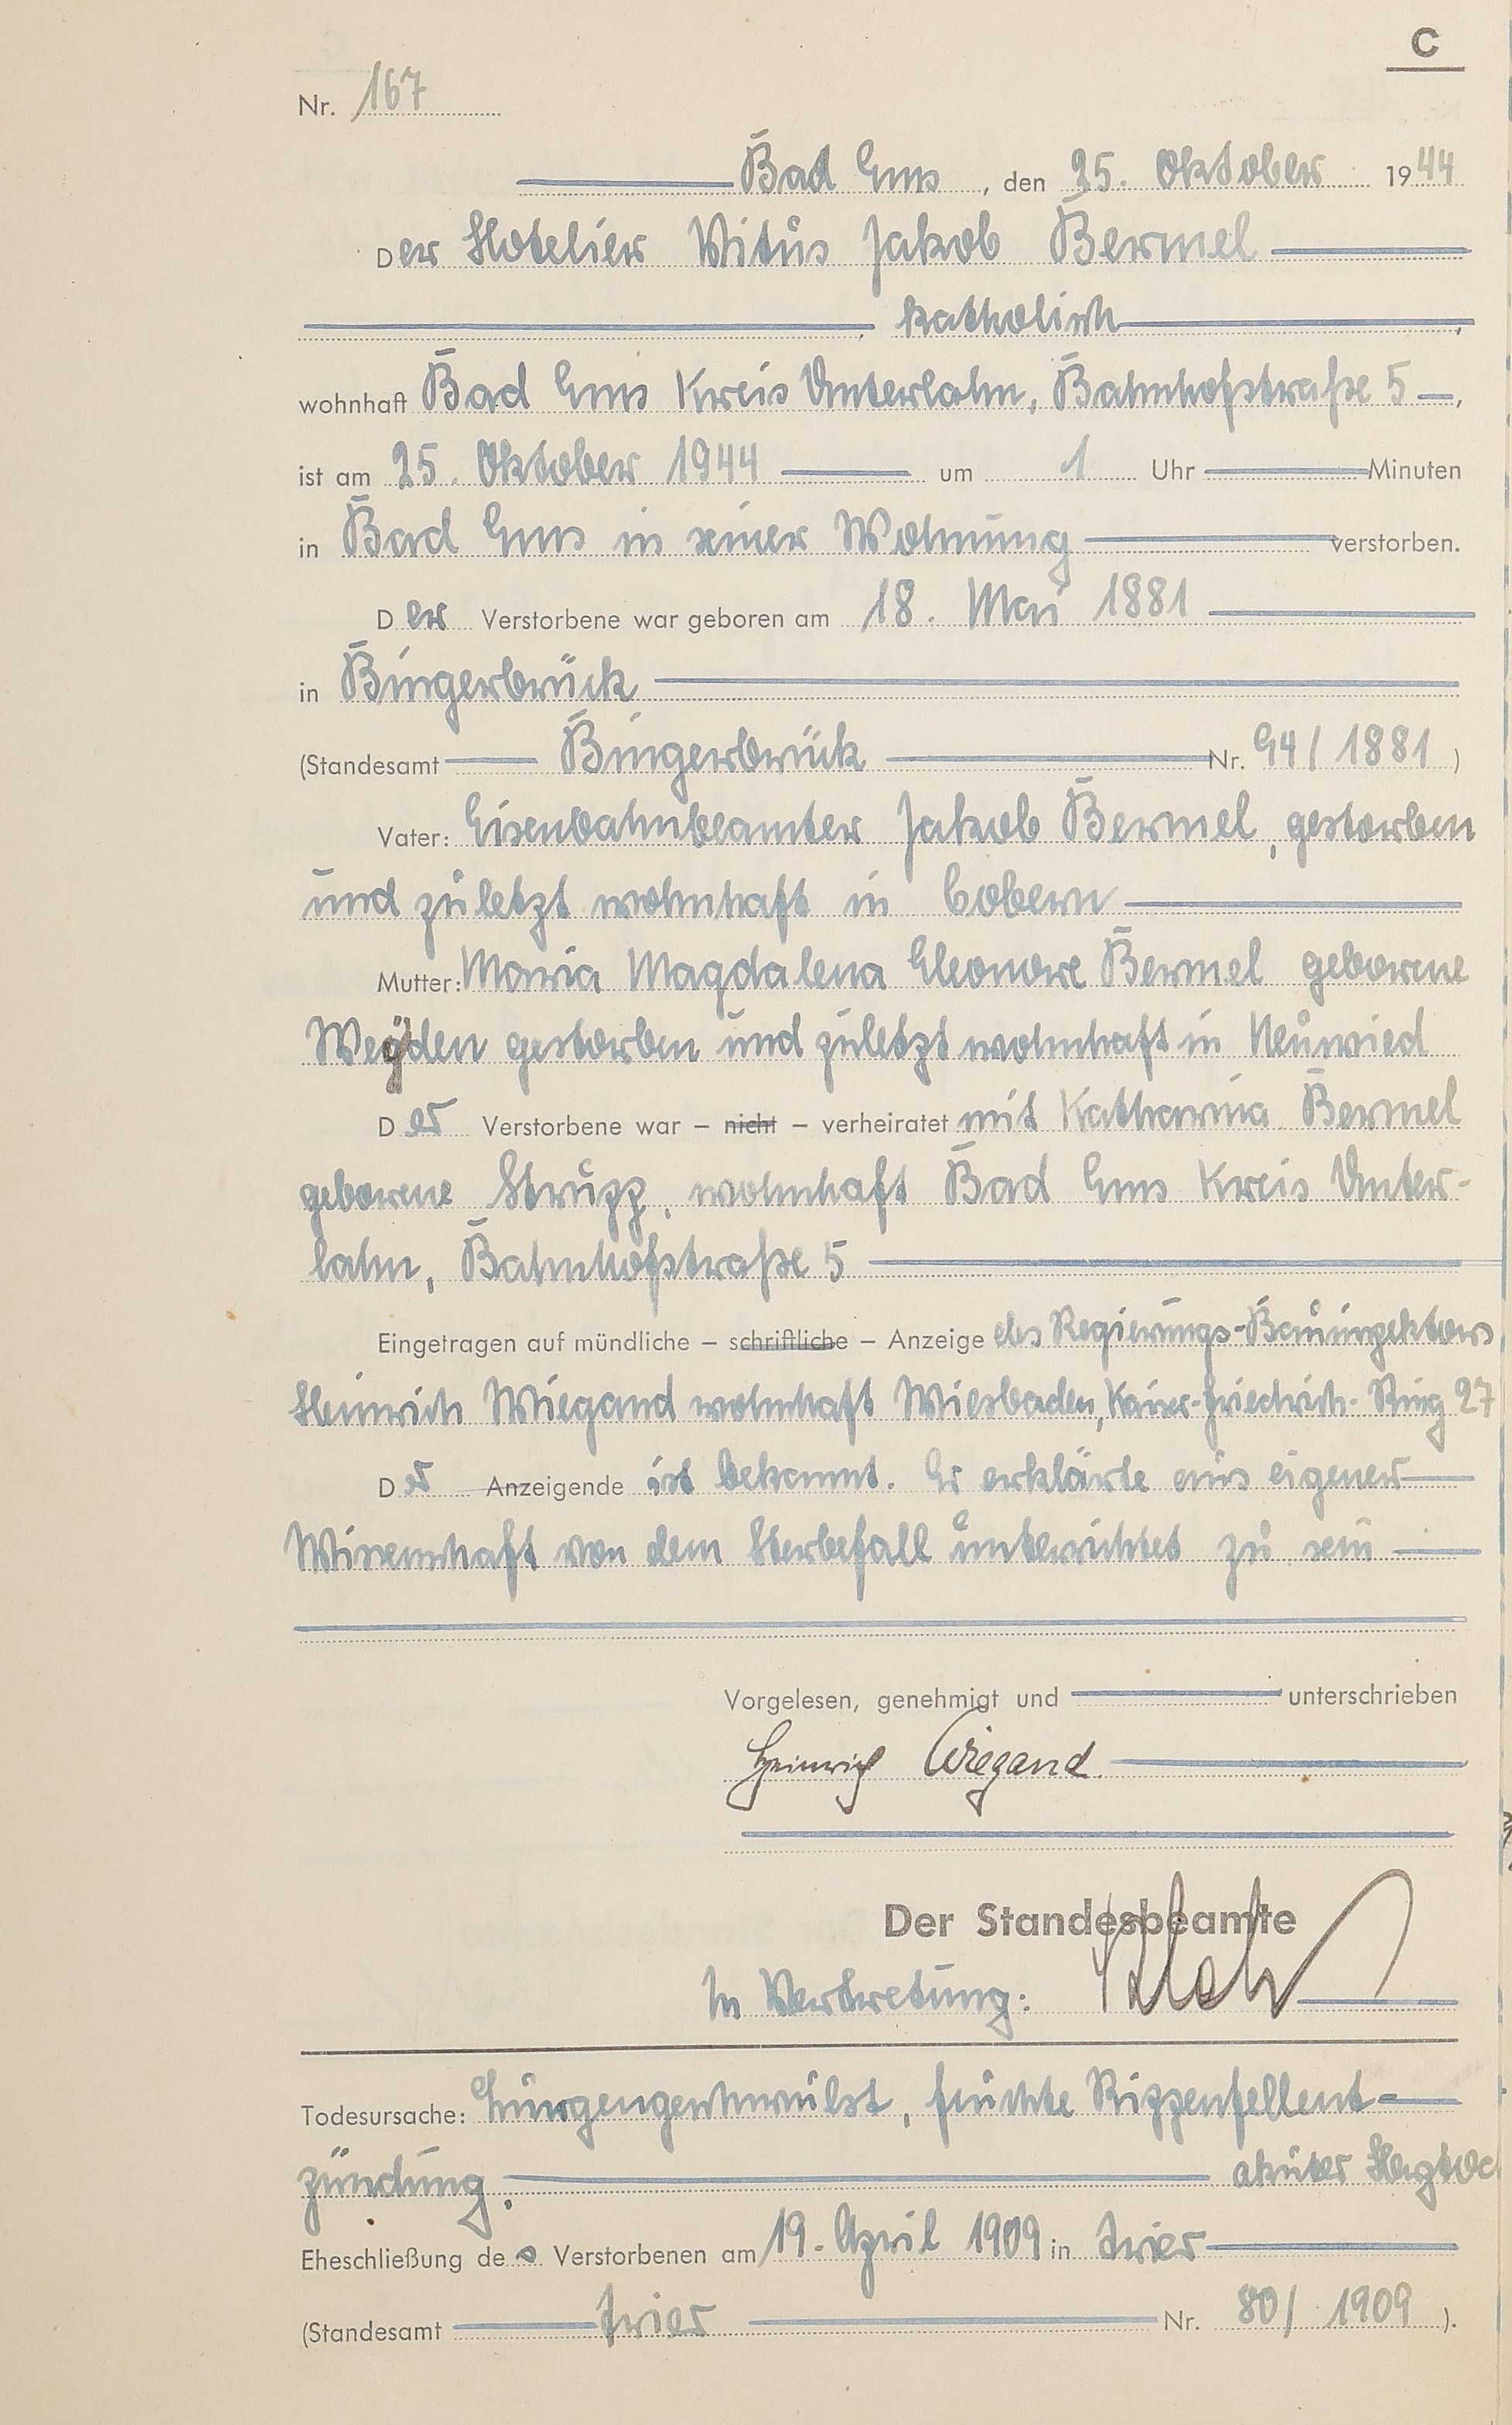 C
Nr. 167
Bad Ems, den 25. Oktober 1944
Der Hotelier Vitus Jakob Bermel
katholisch,
wohnhaft Bad Ems Kreis Unterlahn, Bahnhofstraße 5,
ist am 25. Oktober 1944 um 1 Uhr Minuten
in Bad Ems in seiner Wohnung verstorben.
Der Verstorbene war geboren am 18. Mai 1881
in Bingerbrück
(Standesamt Bingerbrück Nr. 94/1881)
Vater: Eisenbahnbeamter Jakob Bermel, gestorben
und zuletzt wohnhaft in Cobern
Mutter: Maria Magdalena Eleonore Bermel geborene
Weyden gestorben und zuletzt wohnhaft in Neuwied
Der Verstorbene war – nicht – verheiratet mit Katharina Bermel
geborene Strupp, wohnhaft Bad Ems Kreis Unter-
lahn, Bahnhofstraße 5
Eingetragen auf mündliche – schriftliche – Anzeige des Regierungs-Bauinspektors
Heinrich Wiegand wohnhaft Wiesbaden, Kaiser-Friedrich-Ring 27
Der Anzeigende ist bekannt. Er erklärte aus eigener
Wissenschaft von dem Sterbefall unterrichtet zu sein
Vorgelesen, genehmigt und unterschrieben
Heinrich Wiegand
Der Standesbeamte
In Vertretung:
Todesursache: Lungengeschwulst, feuchte Rippenfellent-
zündung. akuter Herztod
Eheschließung des Verstorbenen am 19. April 1909 in Trier
(Standesamt Trier Nr. 80/1909).